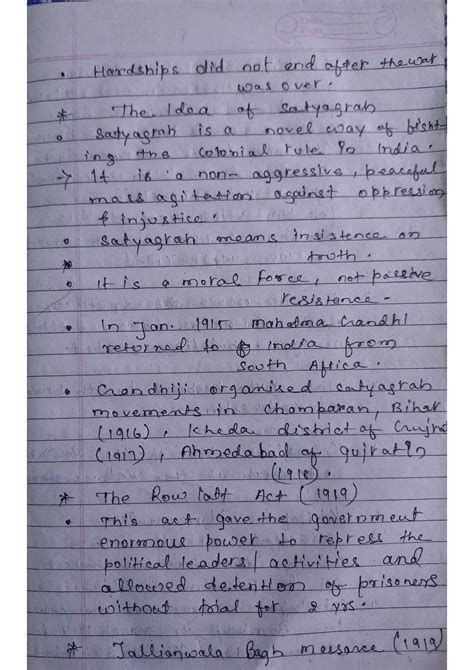 Date
Page
• Hardships did not end after the war
was over.
* The Idea of Satyagrah
• Satyagrah is a novel way of fight-
ing the colonial rule in India.
→ It is a non-aggressive, peaceful
mass agitation against oppression
& injustice.
• Satyagrah means insistence on
truth.
• It is a moral force, not passive
resistance.
• In Jan. 1915 mahatma Gandhi
returned to India from
South Africa.
• Gandhiji organised satyagrah
movements in Champaran, Bihar
(1916), Kheda district of Gujra
(1917), Ahmedabad of Gujrat in
(1918).
* The Rowlatt Act (1919)
• This act gave the government
enormous power to repress the
political leaders/activities and
allowed detention of prisoners
without trial for 2 yrs.
* Jallianwala Bagh massacre (1919)